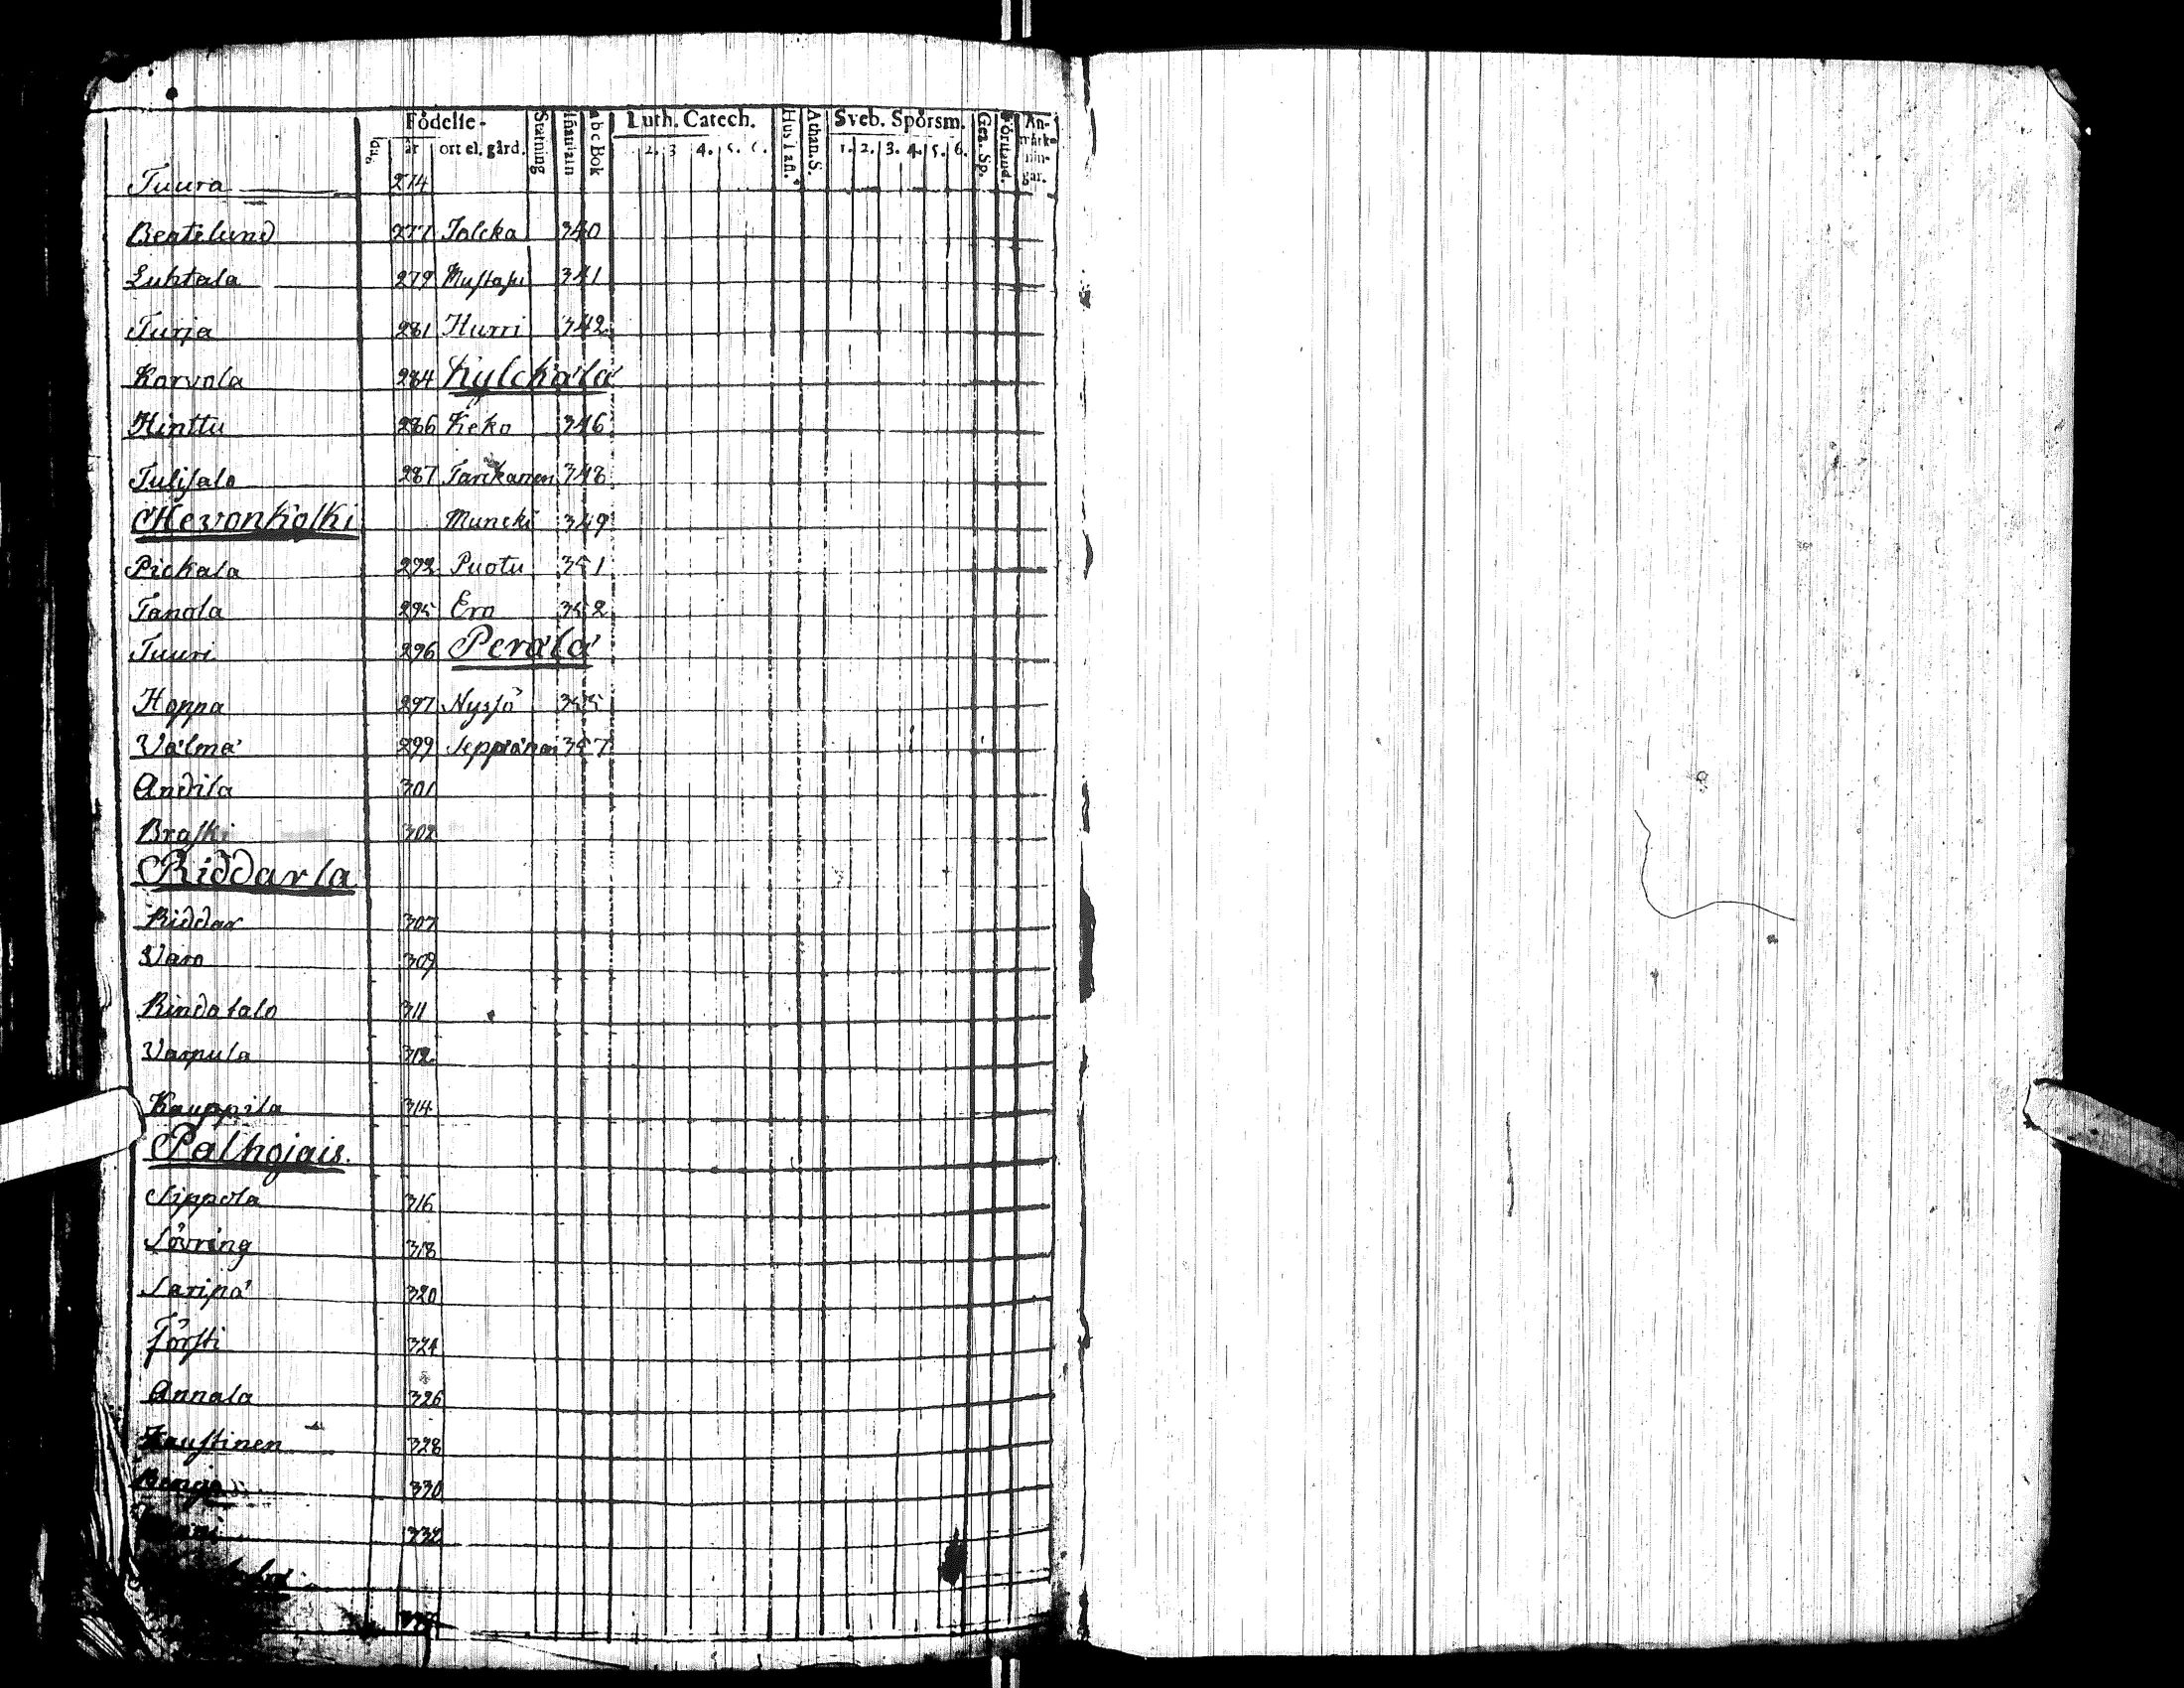 Födelse-
år ort el. gård.
Stafning
Innanläsn
abc Bok
Luth. Catech.
2. 3 4. 5. 6.
Hus Tafl.
Athan. S.
Sveb. Spörsm.
1. 2. 3. 4. 5. 6.
Gez. Sp.
Förstånd.
An-
märk-
nin-
gar.
Tuura 274
Bertilund 277 Jolcka 340
Luhtala 279 Mustasi 341
Turja 281 Hurri 342
Korvola 284 Kylckälä
Hinttu 286 Keko 346
Tulisalo 287 Tanikanen 348
Hevonkoski Muncki 349
Pickala 292 Puotu 351
Tanola 295 Ero 352
Tuuri 296 Perälä
Hoppa 297 Nysjö 355
Välmä 299 Seppänen 357
Andila 301
Braski 302
Riddarla
Riddar 307
Varo 309
Rindatalo 311
Varpula 312
Kauppila 314
Palhojais.
Sippola 316
Sövring 318
Saripä 320
Försti 324
Annala 326
Kaustinen 328
330
332